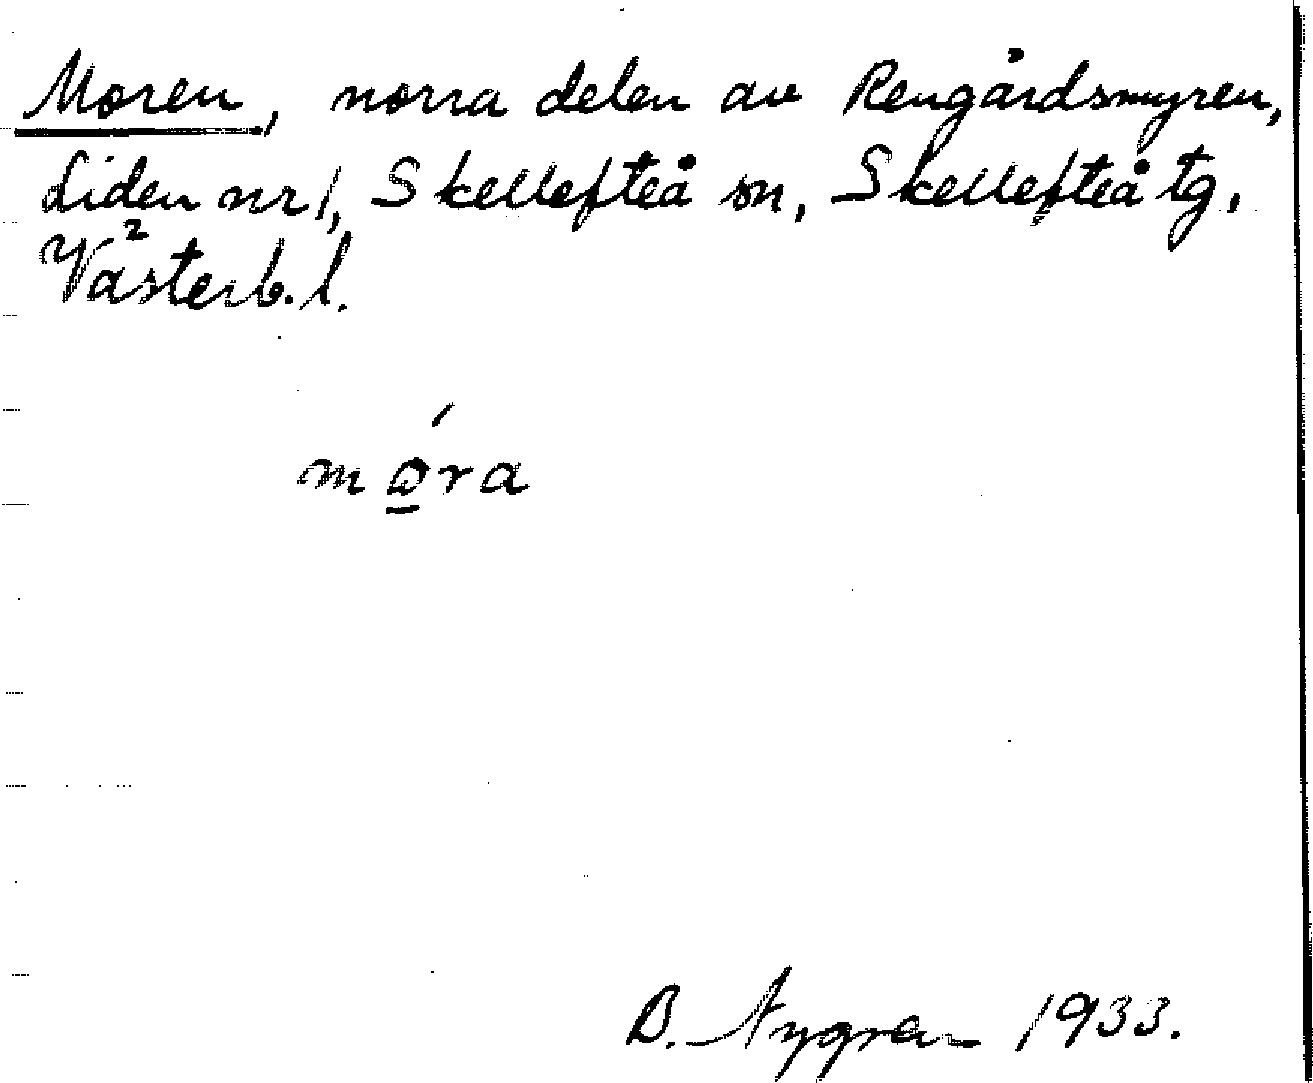 Moren, norra delen av Rengårdsmyren,
Liden nr 1, Skellefteå sn, Skellefteå tg,
Västerb. l.
mo̲ra
B. Nygren 1933.